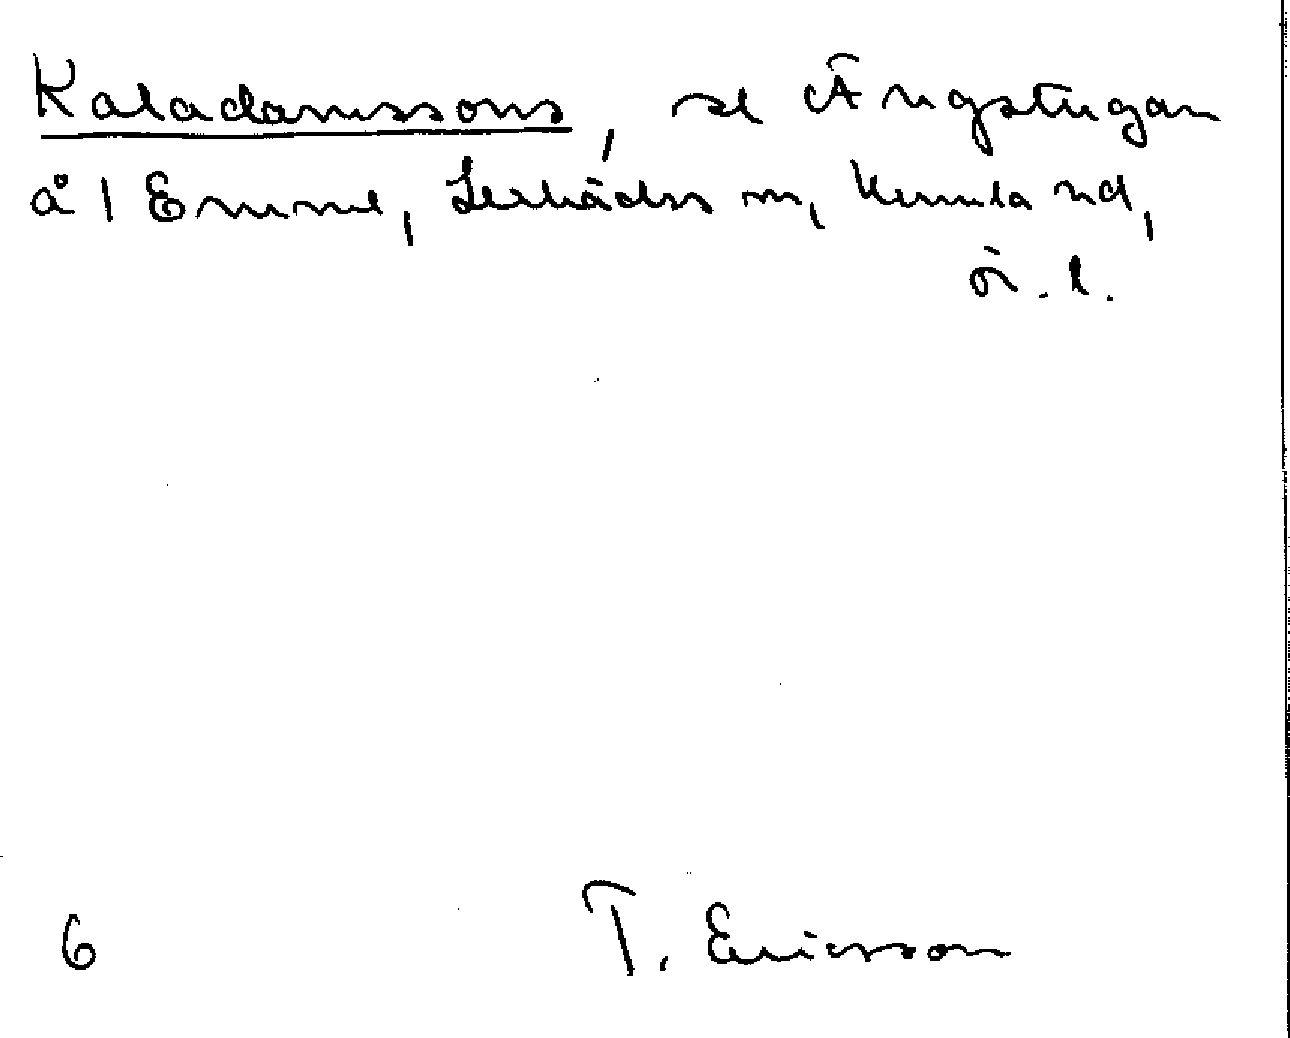 Kaladamssons, se Ängstugan
å 1 Emme, Lerbäcks sn, Kumla hd,
ör. l.
6 T. Ericsson